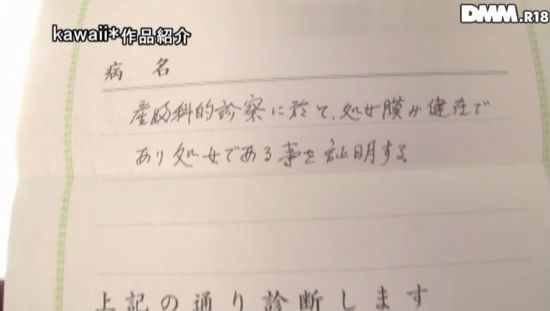 DMM.R18
kawaii*作品紹介
病名
産婦科的診察に於て、処女膜が健在で
あり処女である事を証明する
上記の通り診断します